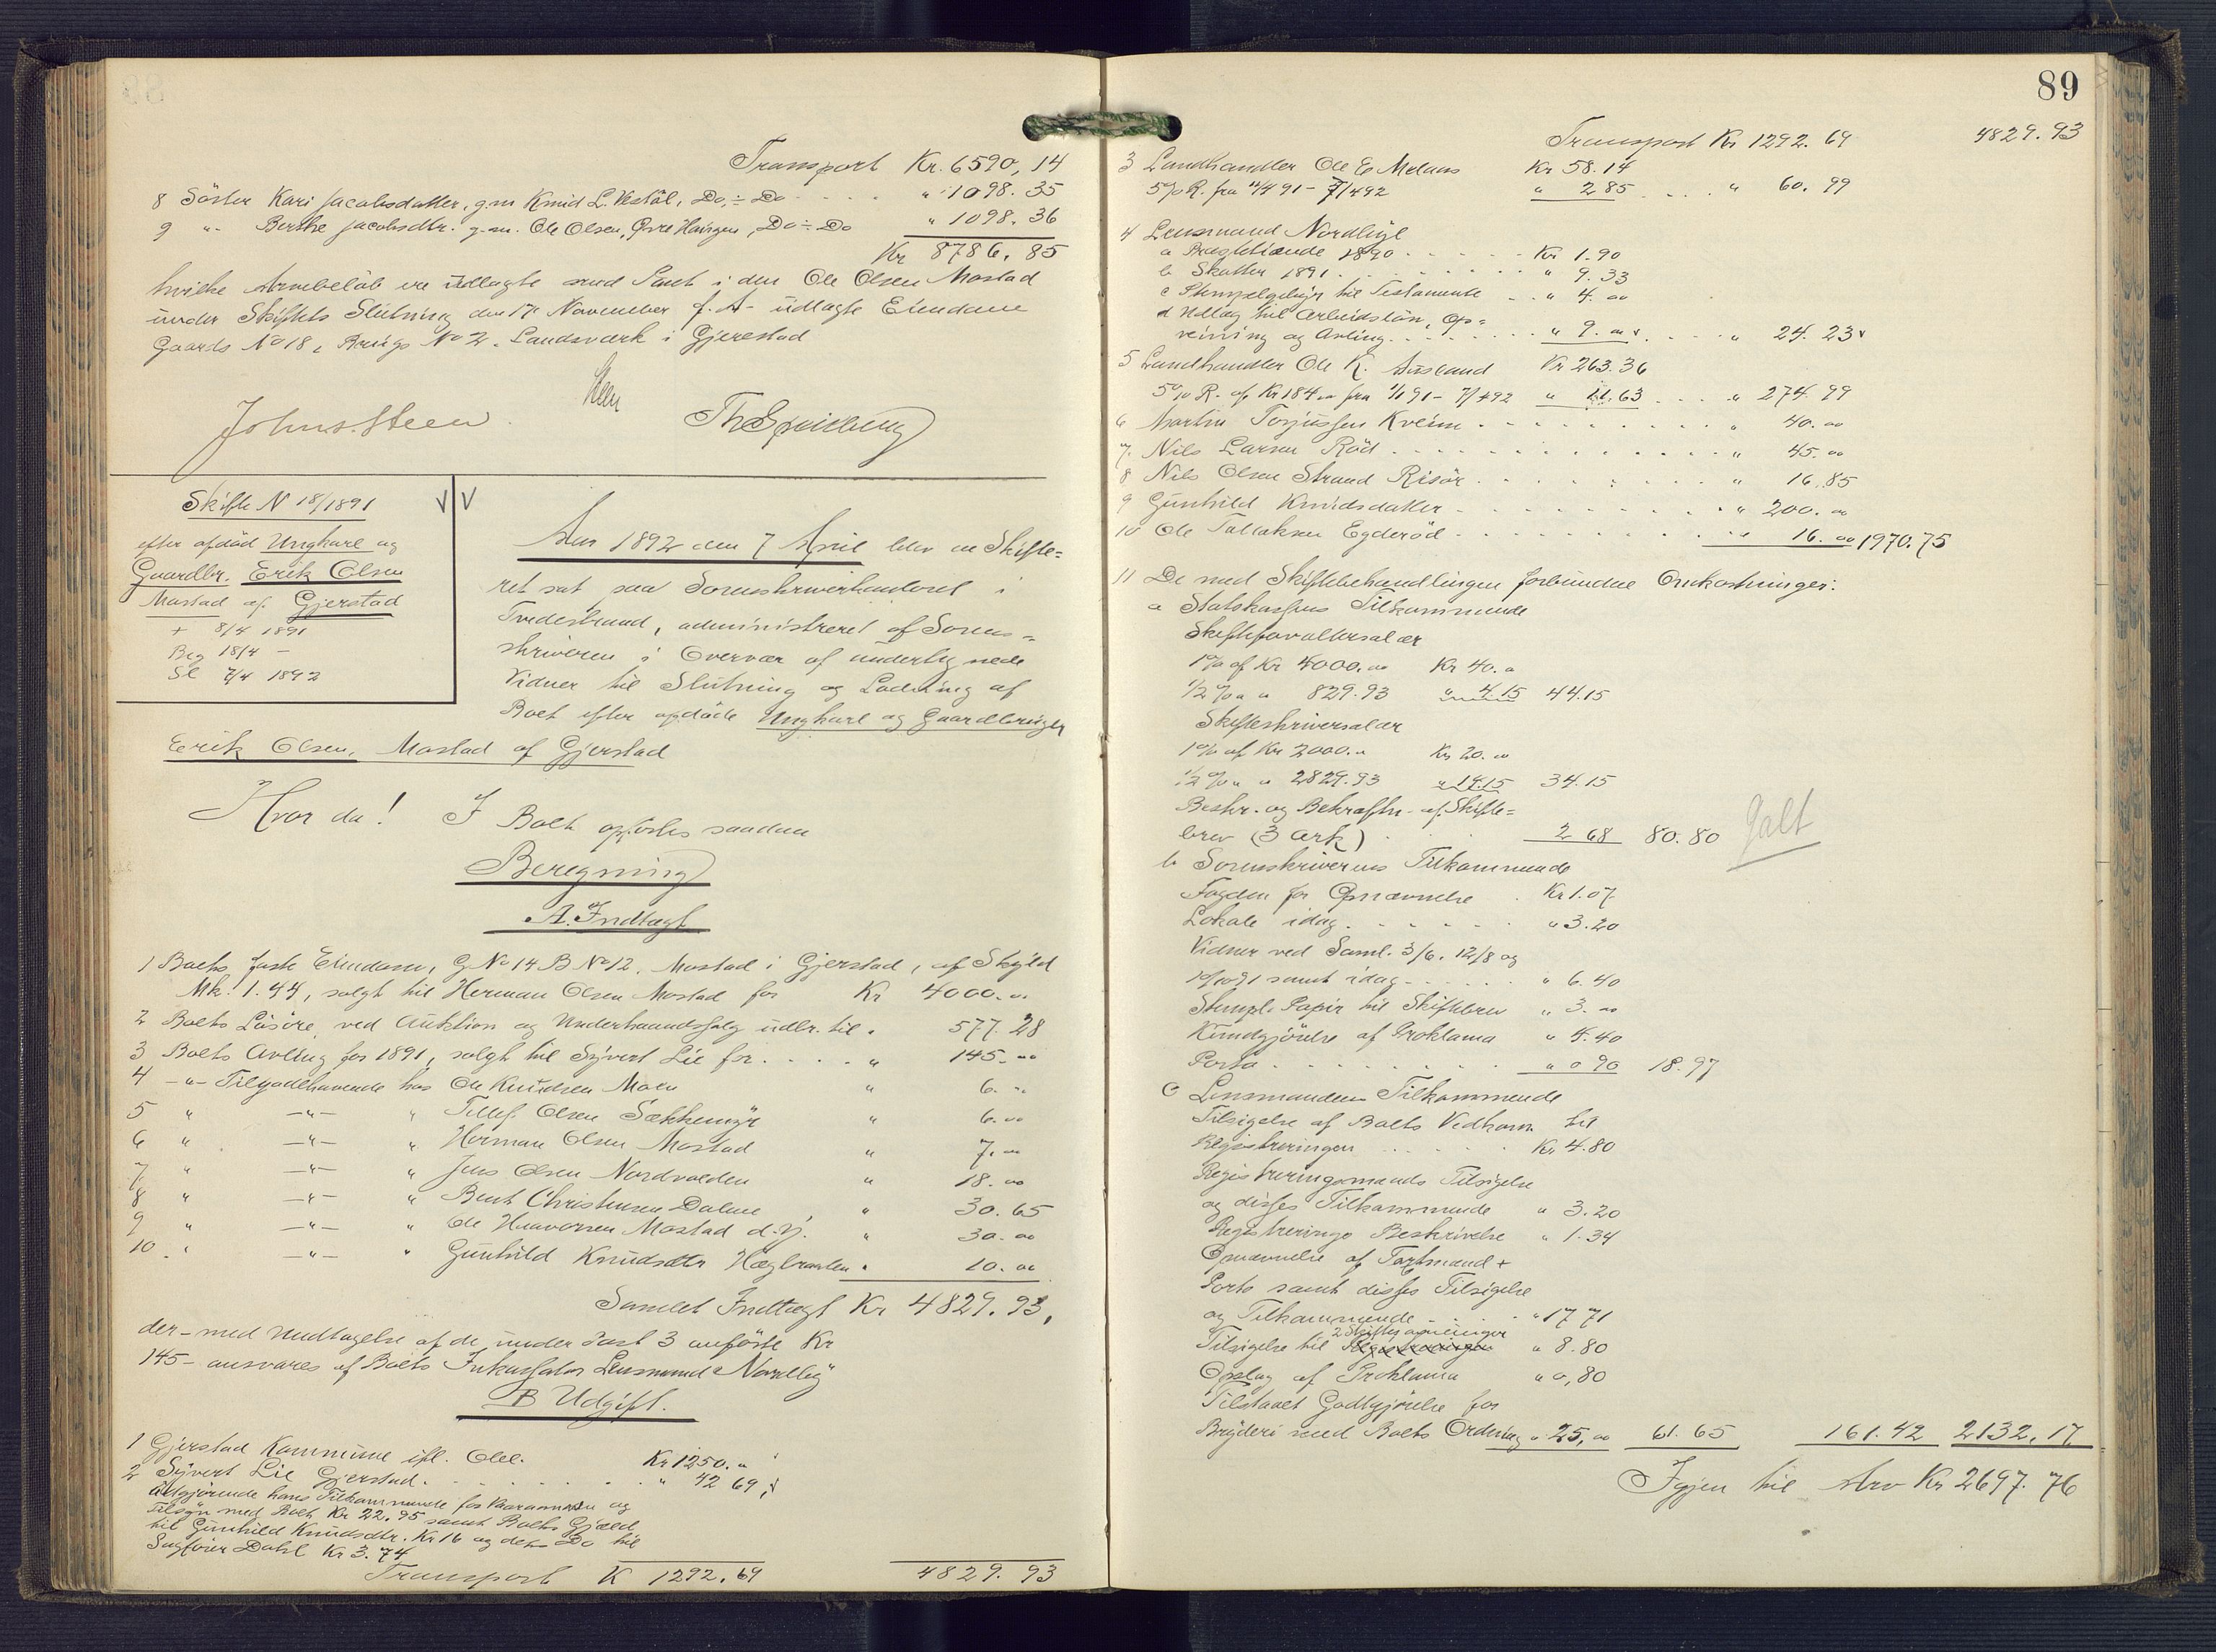 Transport Kr. 6590,14
8 Söster Kari Jacobsdatter, g.m Knud L. Vestöl, Do ÷ Do " 1098.35
9 " Berthe Jacobsdtr. g.m. Ole Olsen, Övre Haugen, Do ÷ Do " 1098.36
Kr 8786.85
hvilke Arvebelöb ere udlagte med Pant i den Ole Olsen Mostad
under Skiftets Slutning den 17 November f. A. udlagte Eiendom
Gaards No 18, Brugs No 2. Landsværk i Gjerestad
Johns. Steen
Skifte N 18/1891
efter afdöd Ungkarl og
Gaardbr. Erik Olsen
Mostad af Gjerstad
+ 8/4 1891
Beg 18/4 –
Sl 7/4 1892
Aar 1892 den 7 April blev en Skifte=
ret sat paa Sorenskriverkontoret i
Tvedestrand, administreret af Sorens=
kriveren i Overvær af undertegnede
Vidner til Slutning og Lodning af
Boet efter afdöde Ungkarl og Gaardbruger
Erik Olsen, Mostad af Gjerstad
Hvor da! I Boet opförtes saadan
Beregning
A. Indtægt
1 Boets faste Eiendom, G No 14 B No 12, Mostad i Gjerstad, af Skyld
Mk. 1.44, solgt til Herman Olsen Mostad for Kr 4000.00
2 Boets Lösöre, ved Auktion og Underhaandssalg udbr. til " 577.28
3 Boets Avling for 1891, solgt til Syvert Lie for " 145.00
4 –"– Tilgodehavende hos Ole Knudsen Moen " 6.00
5 " –"– " Tellef Olsen Sækkemyr " 6.00
6 " –"– " Herman Olsen Mostad " 7.00
7 " –"– " Jens Olsen Nordvolden " 18.00
8 " –"– " Bent Christensen Dalene " 30.65
9 " –"– " Ole Halvorsen Mostad d.y. " 30.00
10 " –"– " Gunhild Knudsdtr Hægbraaten " 10.00
Samlet Indtægt Kr 4829.93,
der – med Undtagelse af de under Post 3 anförte Kr
145 – ansvares af Boets Inkassator Lensmand Nordbö
B Udgift.
1 Gjerstad Kommune ifl. Obl. Kr 1250.00
2 Syvert Lie Gjerstad " 42 69
udgjörende hans Tilkommende for og
Tilsyn med Boet Kr 22.95 samt Boets Gjæld
til Gunhild Knudsdtr. Kr 16 og Do til
Sagförer Dahl Kr 3.74
Transport K 1292.69 4829.93
89
Transport Kr 1292.69 4829.93
3 Landhandler Ole E Melaas Kr 58.14
5% R. fra 12/4 91 – 7/4 92 " 2 85 " 60.99
4 Lensmand Nordbö
a Prestetiende 1890 Kr 1.90
b Skatter 1891 " 9.33
c Stempelgebyr til Testamente " 4.00
d Udlæg til Arbeidslön, Op=
reining og Avling " 9.00 " 24.23
5 Landhandler Ole K. Ausland Kr 263.36
5% R. af Kr 184.00 fra 1/1 91 – 7/4 92 " 11.63 " 274.99
6 Martin Torjussen Kveim " 40.00
7. Nils Larsen Röd " 45.00
8 Nils Olsen Strand Risör " 16.85
9 Gunhild Knudsdatter " 200.00
10 Ole Tallaksen Egderöd " 16.00 1970.75
11 De med Skiftebehandlingen forbundne Omkostninger:
a Statskassens Tilkommende
Skifteforvaltersalær
1% af Kr 4000.00 Kr 40.00
1/2% " " 829.93 " 4.15 44.15
Skifteskriversalær
1% af Kr 2000.00 Kr 20.00
1/2% " " 2829.93 " 14.15 34.15
Beskr. og Bekræftn. af Skifte=
brev (3 Ark) 2 68 80.80 galt
b Sorenskriverens Tilkommende
Fogden for Opnævnelse Kr 1.07
Lokale idag " 3.20
Vidner ved Saml. 3/6, 12/8 og
10/10 91 samt idag " 6.40
Stempl. Papir til Skiftebrev " 3.00
Kundgjörelse af Proklama " 4.40
Porto " 0 90 18.97
c Lensmanden Tilkommende
Tilsigelse af Boets Vedkom. til
Registreringen Kr 4.80
Registreringsmænds Tilsigelse
og disses Tilkommende " 3.20
Registrerings Beskrivelse " 1.34
Opnævnelse af Taxtmænd +
Porto samt disses Tilsigelse
og Tilkommende " 17 71
2 Skiftesamlinger
Tilsigelse til " 8.80
Opslag af Proklama " 0,80
Tilstaaet Godtgjörelse for
Bryderi med Boets Ordning " 25,00 61.65 161.42 2132.17
Igjen til Arv Kr 2697.76